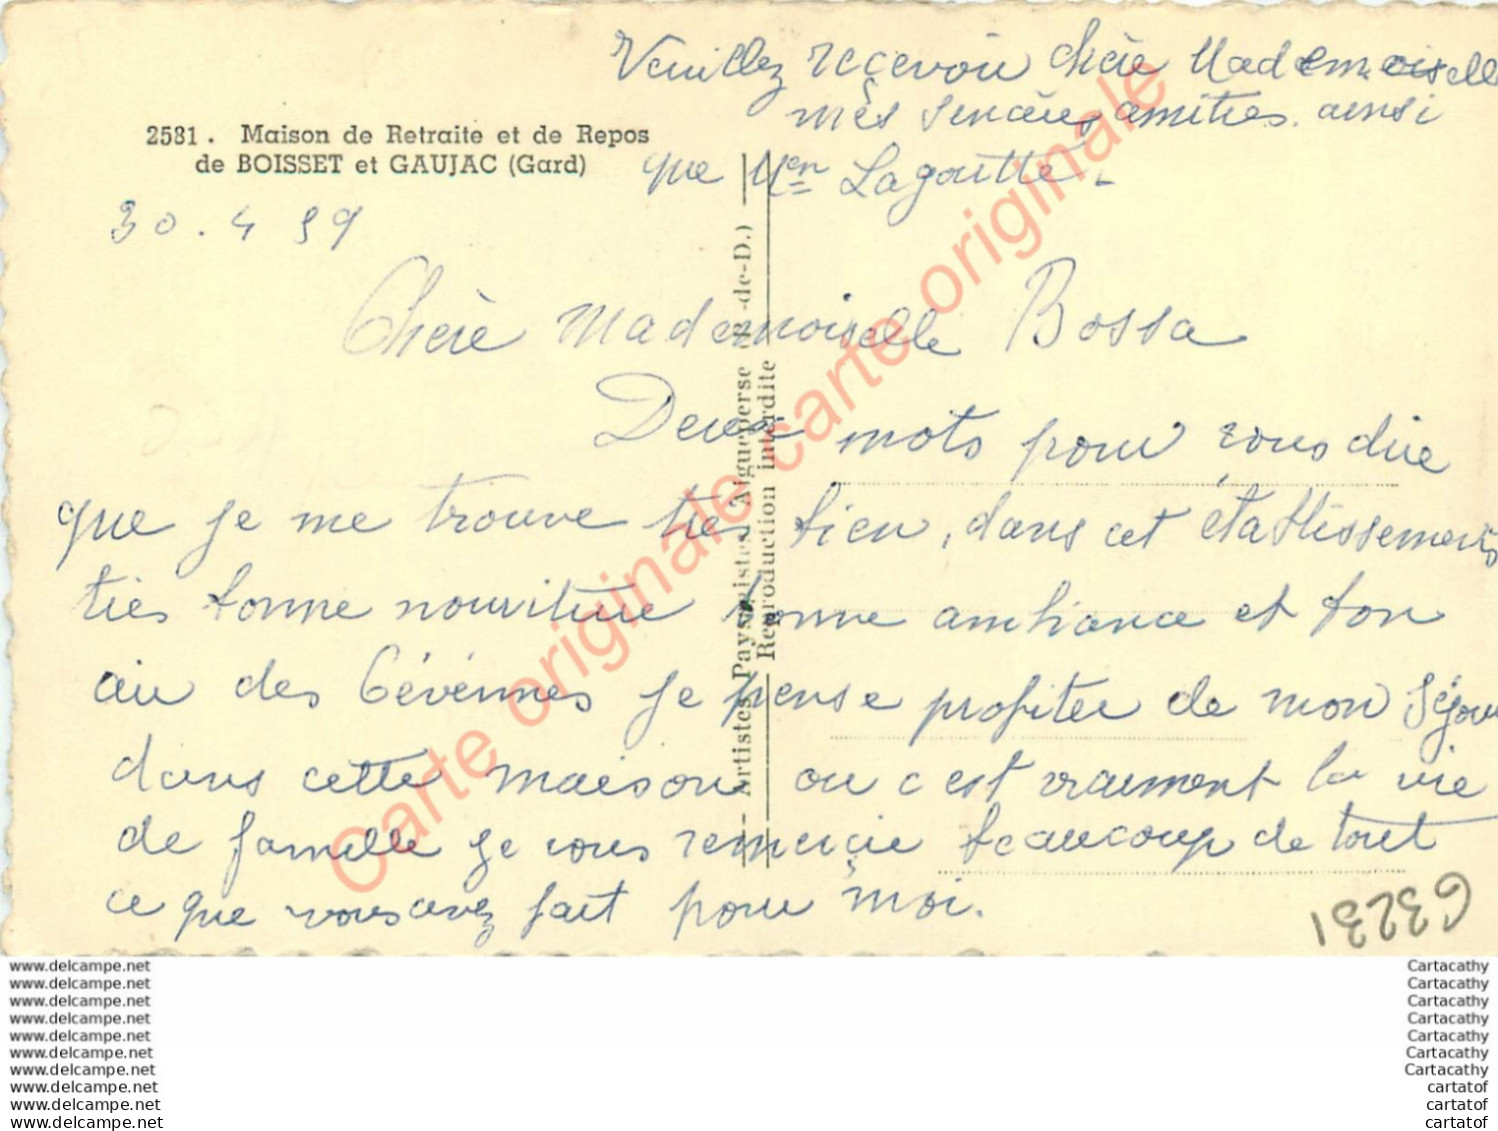 Veuillez recevoir chère Mademoiselle
mes sincères amitiés ainsi
que Lagoutte.
2581. Maison de Retraite et de Repos
de BOISSET et GAUJAC (Gard)
30. 4 59
Chère Mademoiselle Bossa
Deux mots pour vous dire
que je me trouve très bien, dans cet établissement
très bonne nourriture bonne ambiance et bon
air des Cévennes je pense profiter de mon séjour
dans cette maison ou c est vraiment la vie
de famille je vous remercie beaucoup de tout
ce que vous avez fait pour moi.
Artistes Paysagistes Aigueperse (P.-de-D.)
Reproduction interdite
Carte originale carte originale
63231
www.delcampe.net
www.delcampe.net
www.delcampe.net
www.delcampe.net
www.delcampe.net
www.delcampe.net
www.delcampe.net
www.delcampe.net
www.delcampe.net
www.delcampe.net
Cartacathy
Cartacathy
Cartacathy
Cartacathy
Cartacathy
Cartacathy
Cartacathy
cartatof
cartatof
cartatof